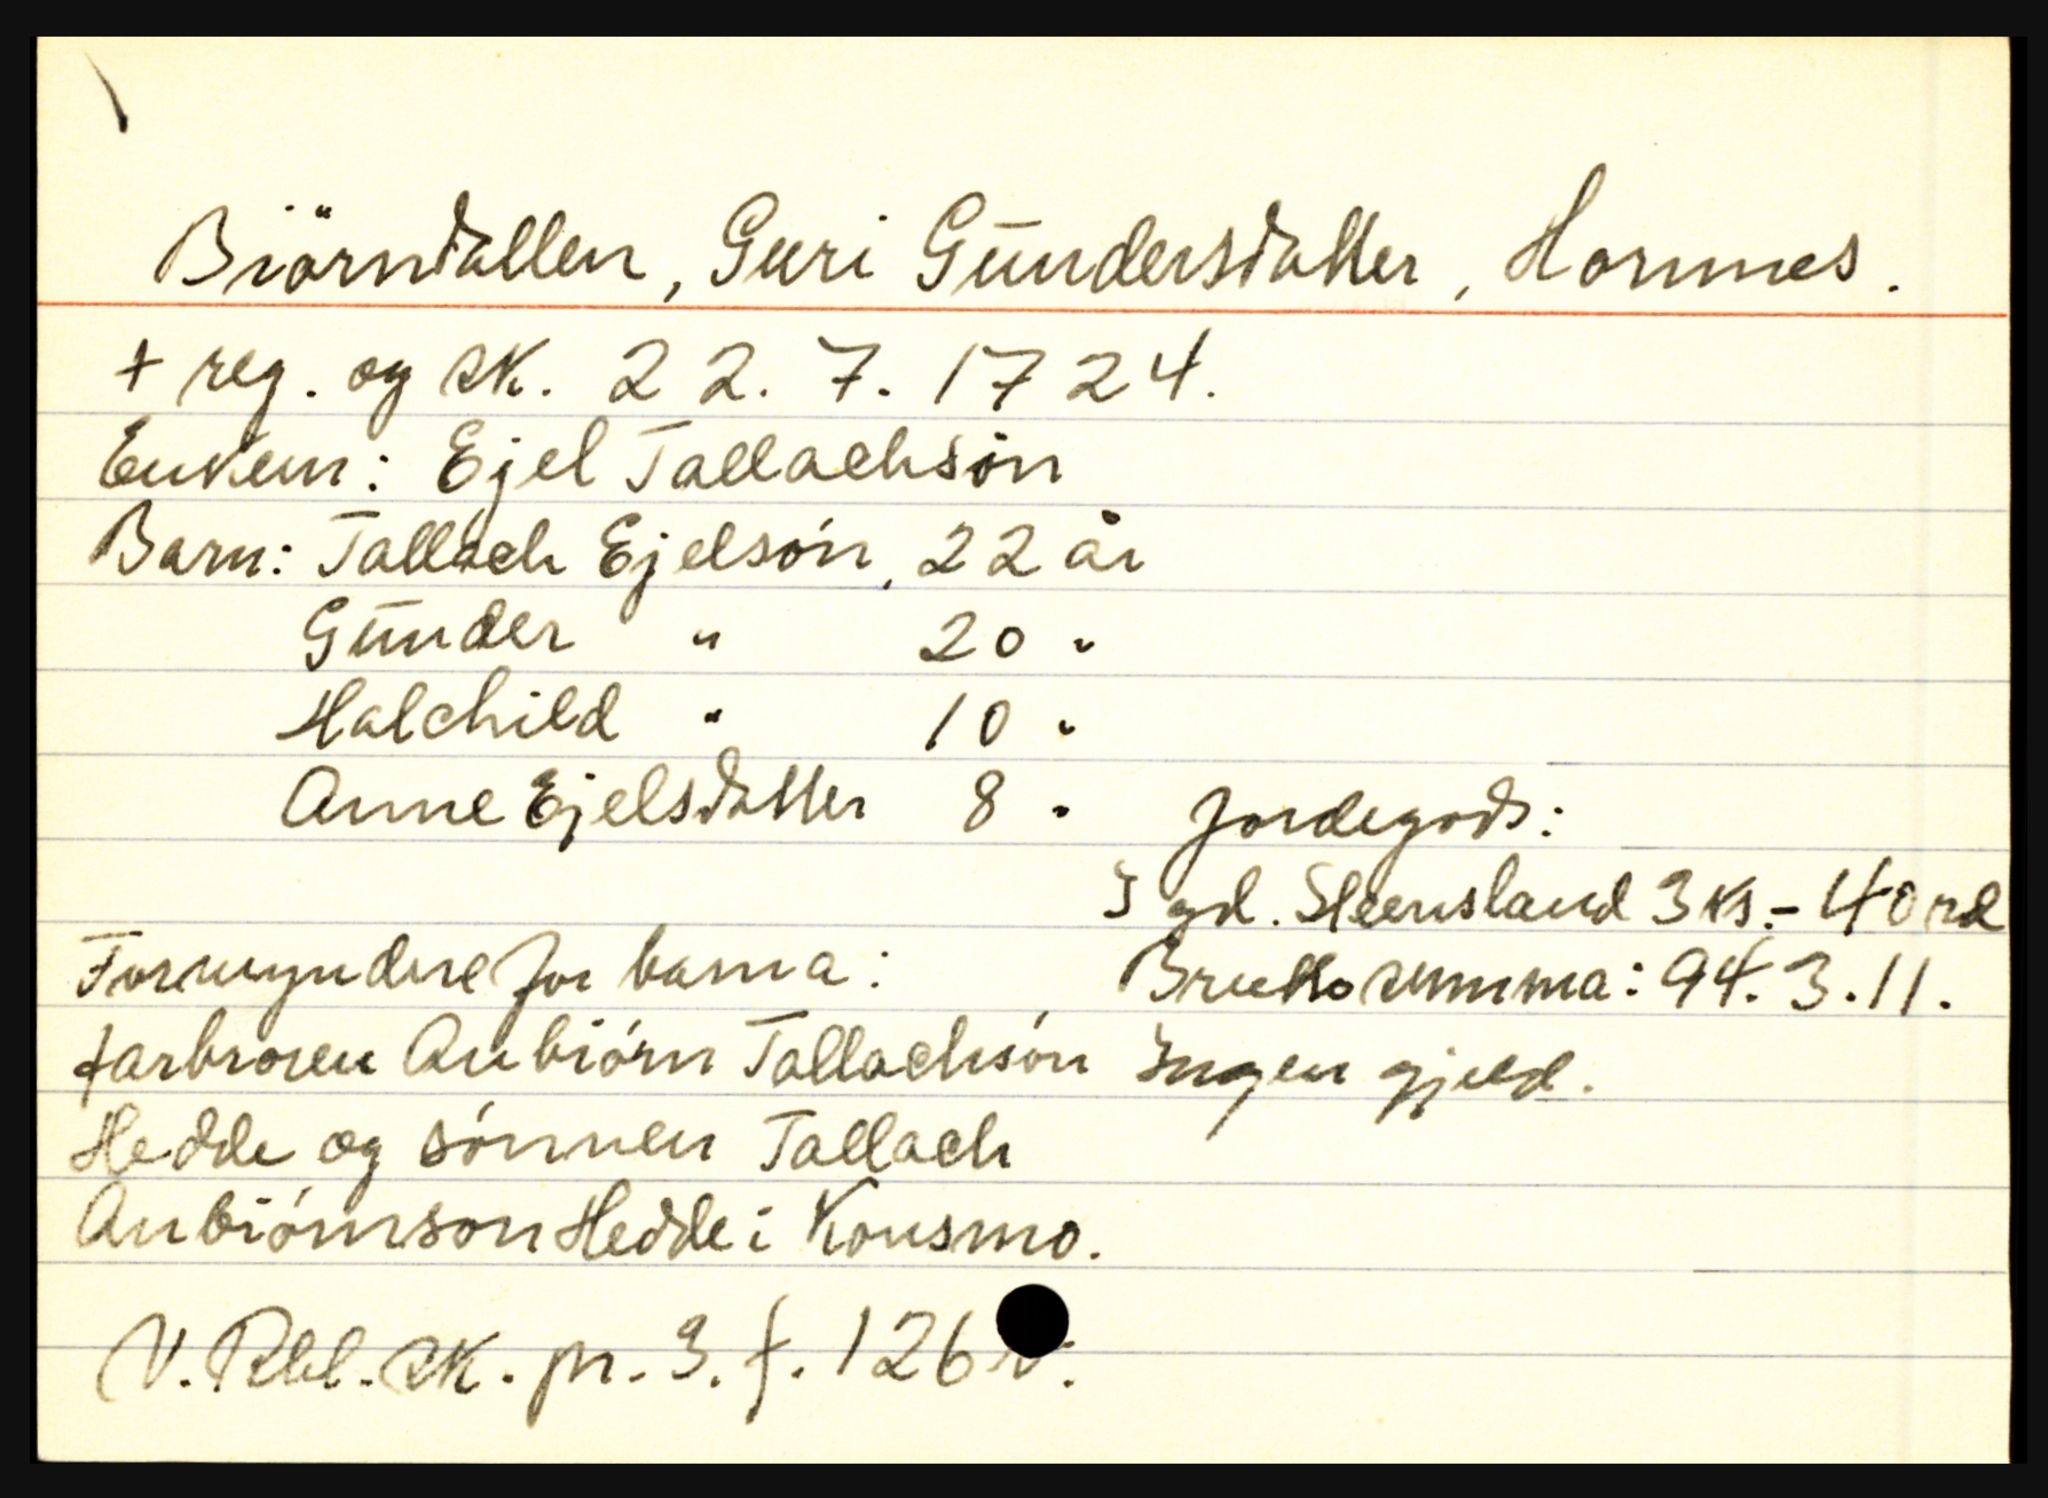 Biörndallen, Guri Gündersdatter, Hornnes.
+ reg. og sk. 22. 7. 1724.
Enkem: Ejel Tallachsön
Barn: Tallach Ejelsón, 22 år
Günder " 20 "
Halchild " 10 "
Anne Ejelsdatter 8 "
Jordegods:
I gd. Steensland 3 ks. - 40 rd
Bruttosumma: 94. 3. 11.
Ingen gjeld.
Formyndere for barna:
farbroren Anbiórn Tallachsón
Hedde og sónnen Tallach
Anbiórnson Hedde i Konsmo.
V. Rbl. sk. pr. 3. f. 126 v.